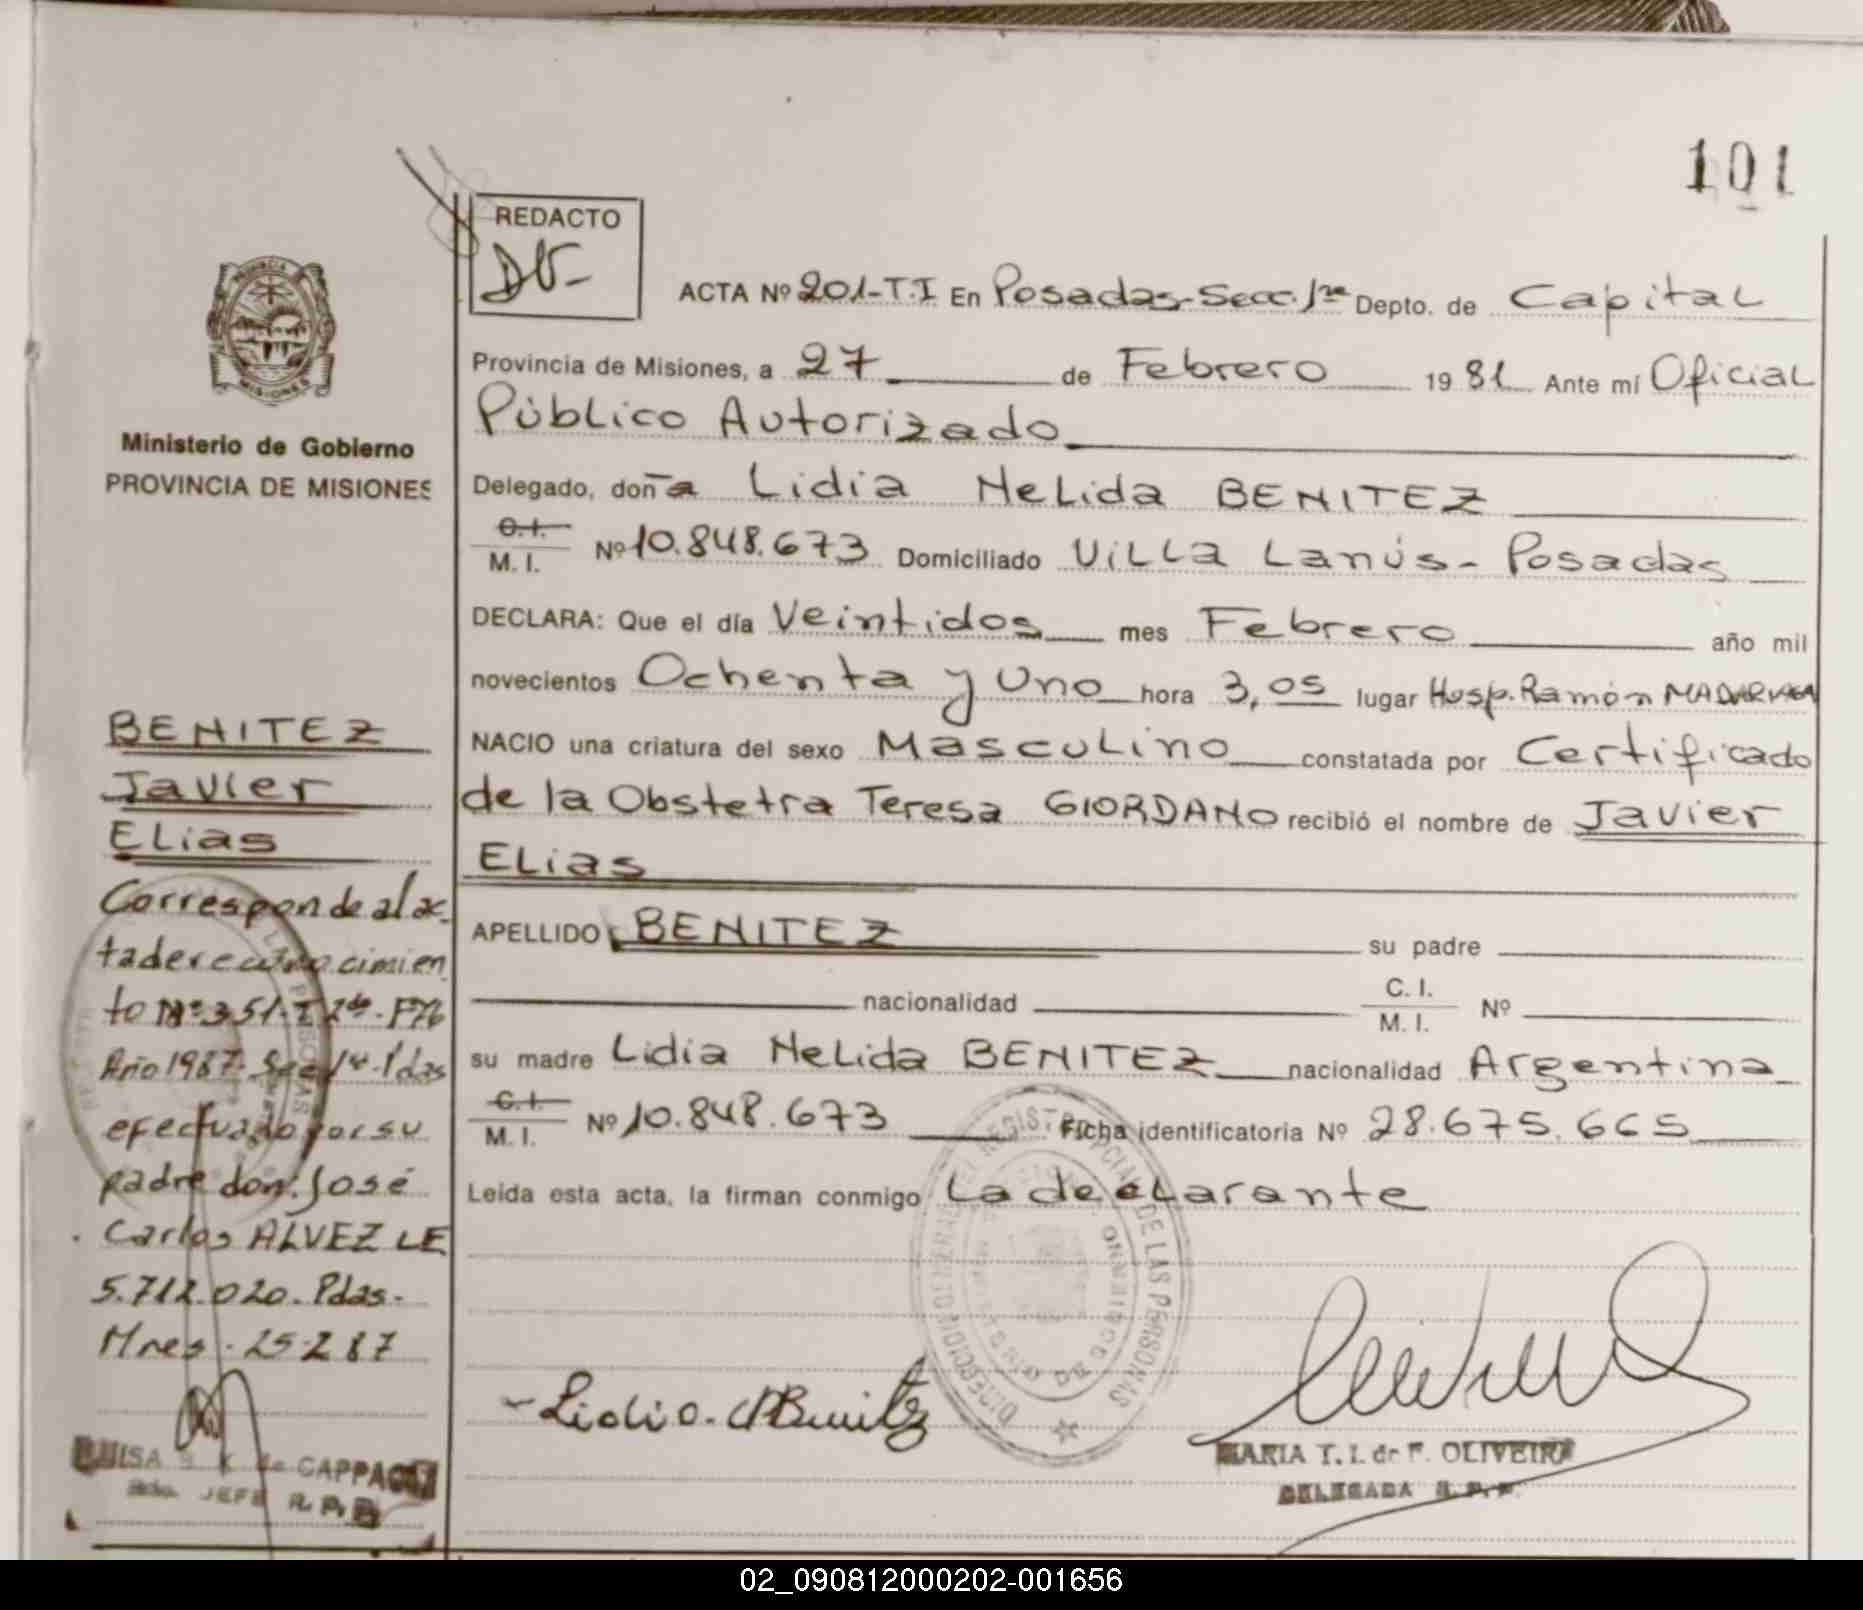 101
REDACTO
ACTA Nº 201-T.I En Posadas-Secc. 1ra Depto. de Capital
Provincia de Misiones, a 27 de Febrero 1981 Ante mí Oficial
Público Autorizado
Delegado, doña Lidia Nelida BENITEZ
C.I.
M. I. Nº 10.848.673 Domiciliado Villa Lanús - Posadas
DECLARA: Que el día Veintidos mes Febrero año mil
novecientos Ochenta y Uno hora 3,05 lugar Hosp. Ramón MADARIAGA
NACIO una criatura del sexo Masculino constatada por Certificado
de la Obstetra Teresa GIORDANO recibió el nombre de Javier
Elias
APELLIDO BENITEZ su padre
nacionalidad C. I.
M. I. Nº
su madre Lidia Nelida BENITEZ nacionalidad Argentina
C.I.
M. I. Nº 10.848.673 Ficha identificatoria Nº 28.675.665
Leida esta acta, la firman conmigo La declarante
DIRECCION GENERAL DEL REGISTRO PROVINCIAL DE LAS PERSONAS
MINISTERIO DE GOBIERNO
Lidia N Benitez
MARIA T. I. de F. OLIVEIRA
DELEGADA R. P. P.
PROVINCIA DE
MISIONES
Ministerio de Gobierno
PROVINCIA DE MISIONES
BENITEZ
Javier
Elias
Corresponde al ac-
ta de reconocimien
to Nº 351-T 2do-F76
Año 1987-Secc 1ra-Pdas
efectuado por su
padre don: José
Carlos ALVEZ LE
5.712.020. Pdas.-
Mnes. 25-2 87
LUISA de CAPPA
JEFE R. P. P.
02_090812000202-001656